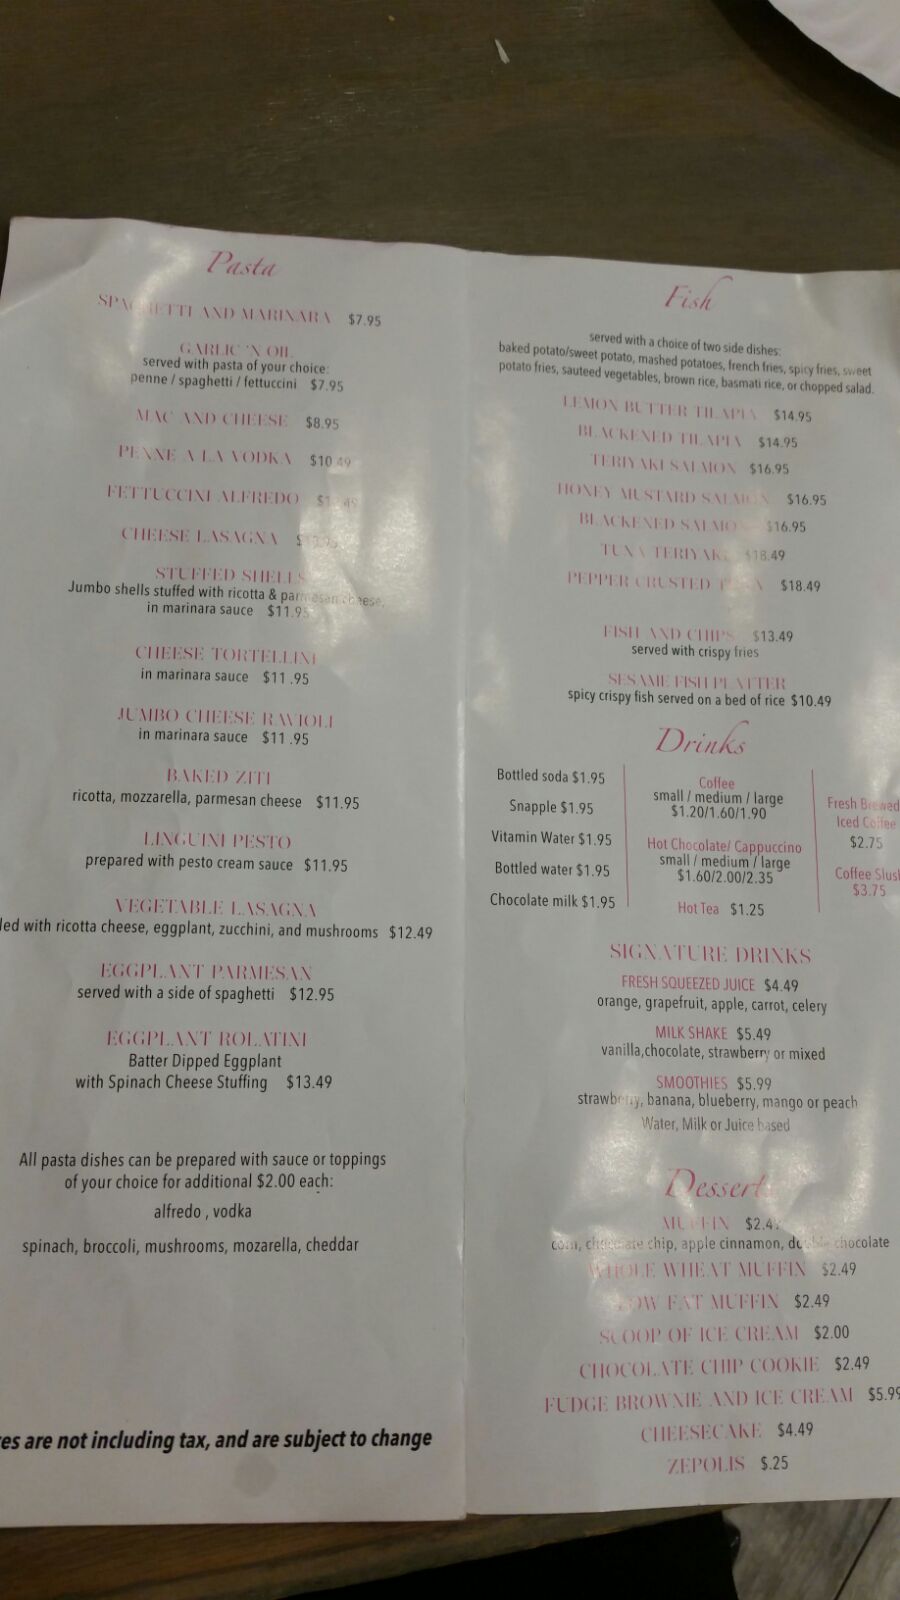 Pasta
SPAGHETTI AND MARINARA $7.95
GARLIC 'N OIL
served with pasta of your choice:
penne / spaghetti / fettuccini $7.95
MAC AND CHEESE $8.95
PENNE A LA VODKA $10.49
FETTUCCINI ALFREDO
CHEESE LASAGNA
STUFFED SHELLS
Jumbo shells stuffed with ricotta & parmesan cheese,
in marinara sauce $11.95
CHEESE TORTELLINI
in marinara sauce $11 .95
JUMBO CHEESE RAVIOLI
in marinara sauce $11 .95
BAKED ZITI
ricotta, mozzarella, parmesan cheese $11.95
LINGUINI PESTO
prepared with pesto cream sauce $11.95
VEGETABLE LASAGNA
led with ricotta cheese, eggplant, zucchini, and mushrooms $12.49
EGGPLANT PARMESAN
served with a side of spaghetti $12.95
EGGPLANT ROLATINI
Batter Dipped Eggplant
with Spinach Cheese Stuffing $13.49
All pasta dishes can be prepared with sauce or toppings
of your choice for additional $2.00 each:
alfredo , vodka
spinach, broccoli, mushrooms, mozarella, cheddar
es are not including tax, and are subject to change
Fish
served with a choice of two side dishes:
baked potato/sweet potato, mashed potatoes, french fries, spicy fries, sweet
potato fries, sauteed vegetables, brown rice, basmati rice, or chopped salad.
LEMON BUTTER TILAPIA $14.95
BLACKENED TILAPIA $14.95
TERIYAKI SALMON $16.95
HONEY MUSTARD SALMON $16.95
BLACKENED SALMON $16.95
TUNA TERIYAKI $18.49
PEPPER CRUSTED TUNA $18.49
FISH AND CHIPS $13.49
served with crispy fries
SESAME FISH PLATTER
spicy crispy fish served on a bed of rice $10.49
Drinks
Bottled soda $1.95
Snapple $1.95
Vitamin Water $1.95
Bottled water $1.95
Chocolate milk $1.95
Coffee
small / medium / large
$1.20/1.60/1.90
Hot Chocolate/ Cappuccino
small / medium / large
$1.60/2.00/2.35
Hot Tea $1.25
Fresh Brewed
Iced Coffee
$2.75
Coffee Slus
$3.75
SIGNATURE DRINKS
FRESH SQUEEZED JUICE $4.49
orange, grapefruit, apple, carrot, celery
MILK SHAKE $5.49
vanilla,chocolate, strawberry or mixed
SMOOTHIES $5.99
strawberry, banana, blueberry, mango or peach
Water, Milk or Juice based
Dessert
MUFFIN $2.49
corn, chocolate chip, apple cinnamon, double chocolate
WHOLE WHEAT MUFFIN $2.49
LOW FAT MUFFIN $2.49
SCOOP OF ICE CREAM $2.00
CHOCOLATE CHIP COOKIE $2.49
FUDGE BROWNIE AND ICE CREAM $5.99
CHEESECAKE $4.49
ZEPOLIS $.25